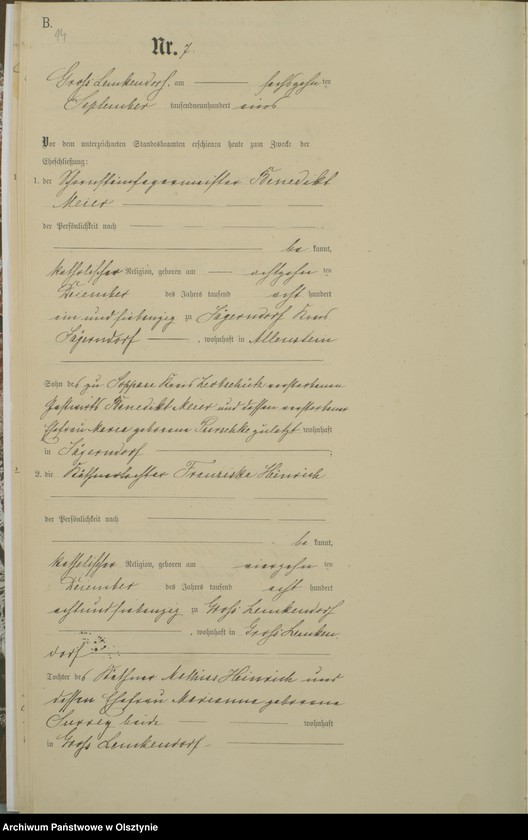 B.
14
Nr. 7.
Groß Lemkendorf, am sechszehn ten
September tausendneunhundert eins
Vor dem unterzeichneten Standesbeamten erschienen heute zum Zwecke der
Eheschließung:
1. der Schornsteinfegermeister Benedikt
Meier
der Persönlichkeit nach
be kannt,
katholischer Religion, geboren am achtzehn ten
Dezember des Jahres tausend acht hundert
ein und siebenzig zu Jägerndorf Kreis
Jägerndorf, wohnhaft in Allenstein
Sohn des zu Kreis verstorbenen
Gastwirts Benedikt Meier und dessen verstorbenen
Ehefrau Maria geborene zuletzt wohnhaft
in Jägerndorf
2. die Käthnertochter Franziska Hinrich
der Persönlichkeit nach
be kannt,
katholischer Religion, geboren am vierzehn ten
Dezember des Jahres tausend acht hundert
achtundsiebenzig zu Groß Lemkendorf
, wohnhaft in Groß Lemken
dorf
Tochter des Käthner Mathias Hinrich und
dessen Ehefrau Marianna geborene
beide wohnhaft
in Groß Lemkendorf
Archiwum Państwowe w Olsztynie